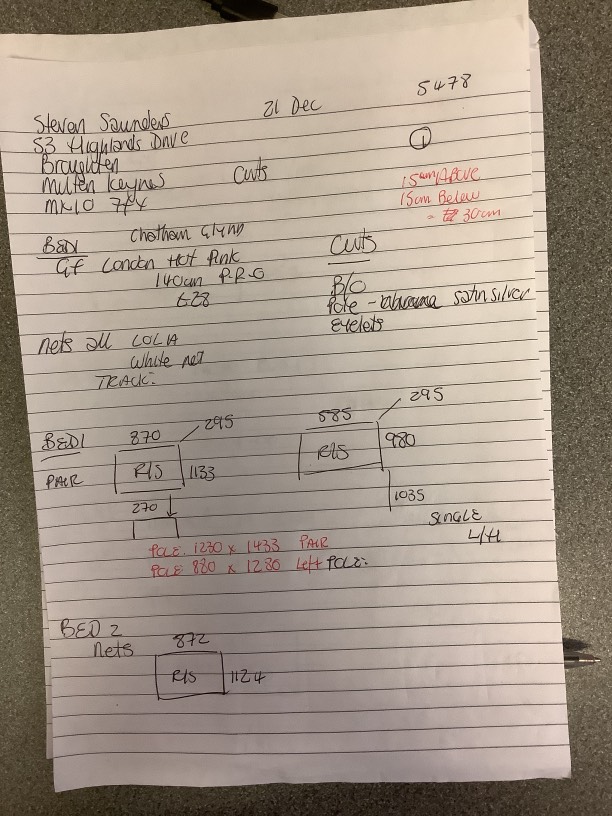 21 Dec
5478
Steven Saunders
53 Highlands Drive
Broughton
Milton Keynes
MK10 7
Cuts
1
15cm Above
15cm Below
= 30cm
BED1
Chatham Glynn
GF London Hot Pink
140cm P.R.O
£28
Cuts
B/O
Pole - satin silver
Eyelets
Nets all LOLIA
White net
TRACK:
BED1
PAIR
870
295
R/S
1133
270
585
295
R/S
980
1035
SINGLE
L/H
POLE. 1230 x 1433 PAIR
POLE 880 x 1280 Left POLE:
BED 2
Nets
872
R/S
1124